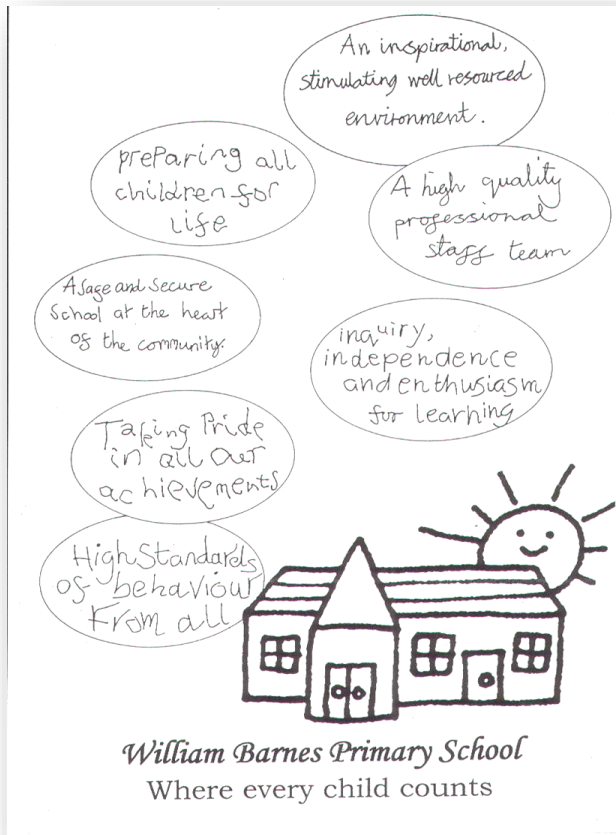 An inspirational,
stimulating well resourced
environment.
preparing all
children for
life
A high quality
professional
staff team
A safe and secure
School at the heart
of the community.
inquiry,
independence
and enthusiasm
for learning
Taking Pride
in all our
achievements
High Standards
of behaviour
From all
William Barnes Primary School
Where every child counts